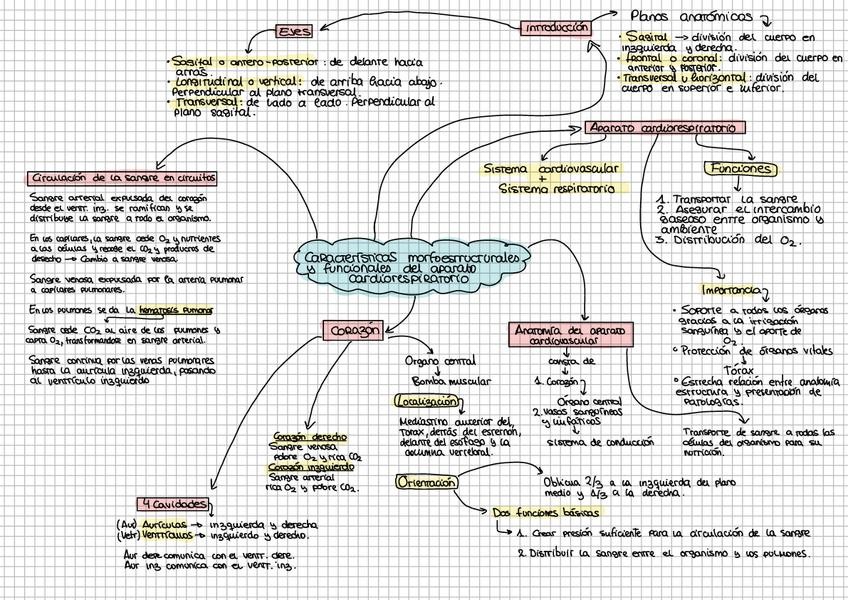 Introducción
Planos anatómicos
• Sagital → división del cuerpo en
izquierda y derecha.
• Frontal o coronal: división del cuerpo en
anterior y posterior.
• Transversal u horizontal: división del
cuerpo en superior e inferior.
Ejes
• Sagital o antero-posterior: de delante hacia
atrás.
• Longitudinal o vertical: de arriba hacia abajo.
Perpendicular al plano transversal.
• Transversal: de lado a lado. Perpendicular al
plano sagital.
Aparato cardiorespiratorio
Sistema cardiovascular
+
Sistema respiratorio
Funciones
1. Transportar la sangre
2. Asegurar el intercambio
gaseoso entre organismo y
ambiente
3. Distribución del O2.
Importancia
• Soporte a todos los órganos
gracias a la irrigación
sanguínea y el aporte de
O2
• Protección de órganos vitales
Tórax
• Estrecha relación entre anatomía
estructura y presentación de
patologías.
Circulación de la sangre en circuitos
Sangre arterial expulsada del corazón
desde el ventr. izq. se ramifican y se
distribuye la sangre a todo el organismo.
En los capilares, la sangre cede O2 y nutrientes
a las células y recibe el CO2 y productos de
desecho → Cambio a sangre venosa
Sangre venosa expulsada por la arteria pulmonar
a capilares pulmonares.
En los pulmones se da la hematosis pulmonar
Sangre cede CO2 al aire de los pulmones y
capta O2, transformandose en sangre arterial.
Sangre continúa por las venas pulmonares
hasta la aurícula izquierda, pasando
al ventrículo izquierdo
Características morfoestructurales
y funcionales del aparato
cardiorespiratorio
Corazón
Organo central
Bomba muscular
Localización
Mediastino anterior del
Torax, detrás del esternón,
delante del esófago y la
columna vertebral.
Orientación
Oblicua 2/3 a la izquierda del plano
medio y 1/3 a la derecha.
Dos funciones básicas
1. Crear presión suficiente para la circulación de la sangre
2. Distribuir la sangre entre el organismo y los pulmones.
Corazón derecho
Sangre venosa
pobre O2 y rica CO2
Corazón izquierdo
Sangre arterial
rica O2 y pobre CO2.
4 Cavidades
(Au) Aurículas → izquierda y derecha
(Vetr) Ventrículos → izquierdo y derecho.
Aur dere comunica con el ventr. dere.
Aur izq comunica con el ventr. izq.
Anatomía del aparato
cardiovascular
consta de
1. Corazón
Órgano central
2. vasos sanguíneos
y linfáticos
Sistema de conducción
Transporte de sangre a todas las
células del organismo para su
nutrición.